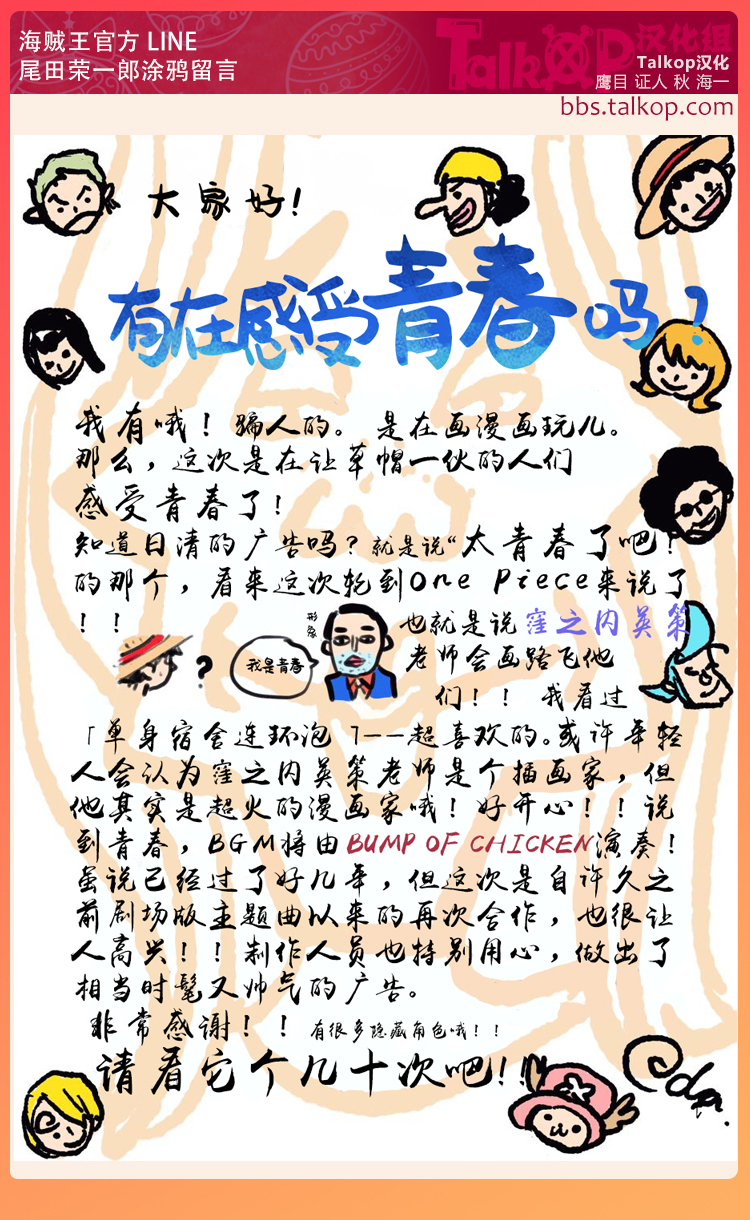 海贼王官方 LINE
尾田荣一郎涂鸦留言
TalkOP汉化组
Talkop汉化
鹰目 证人 秋 海一
bbs.talkop.com
大家好!
有在感受青春吗?
我有哦！骗人的。 是在画漫画玩儿。
那么，这次是在让草帽一伙的人们
感受青春了!
知道日清的广告吗？就是说“太青春了吧!
的那个，看来这次轮到One Piece来说了
！！
形象
？
我是青春
也就是说窪之内英策
老师会画路飞他
们！！ 我看过
「单身宿舍连环泡 」——超喜欢的。或许年轻
人会认为窪之内英策老师是个插画家，但
他其实是超火的漫画家哦！好开心！！说
到青春，BGM将由BUMP OF CHICKEN演奏！
虽说已经过了好几年，但这次是自许久之
前剧场版主题曲以来的再次合作，也很让
人高兴！！制作人员也特别用心，做出了
相当时髦又帅气的广告。
非常感谢！！ 有很多隐藏角色哦！！
请看它个几十次吧!!
Oda.